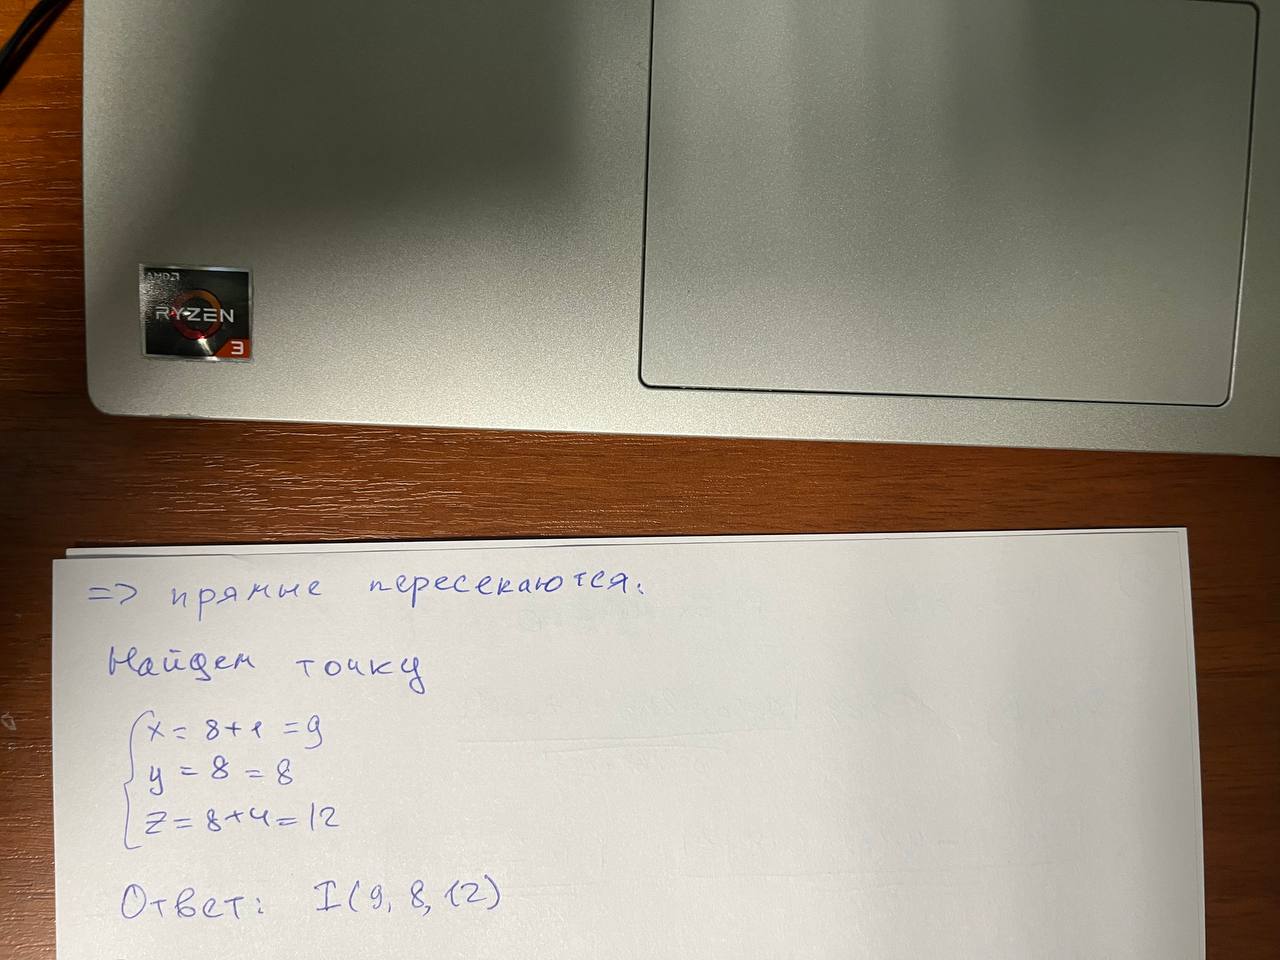 AMD
RYZEN
3
=> прямые пересекаются.
Найдем точку
x = 8+1 = 9
y = 8 = 8
z = 8+4 = 12
Ответ: I(9, 8, 12)